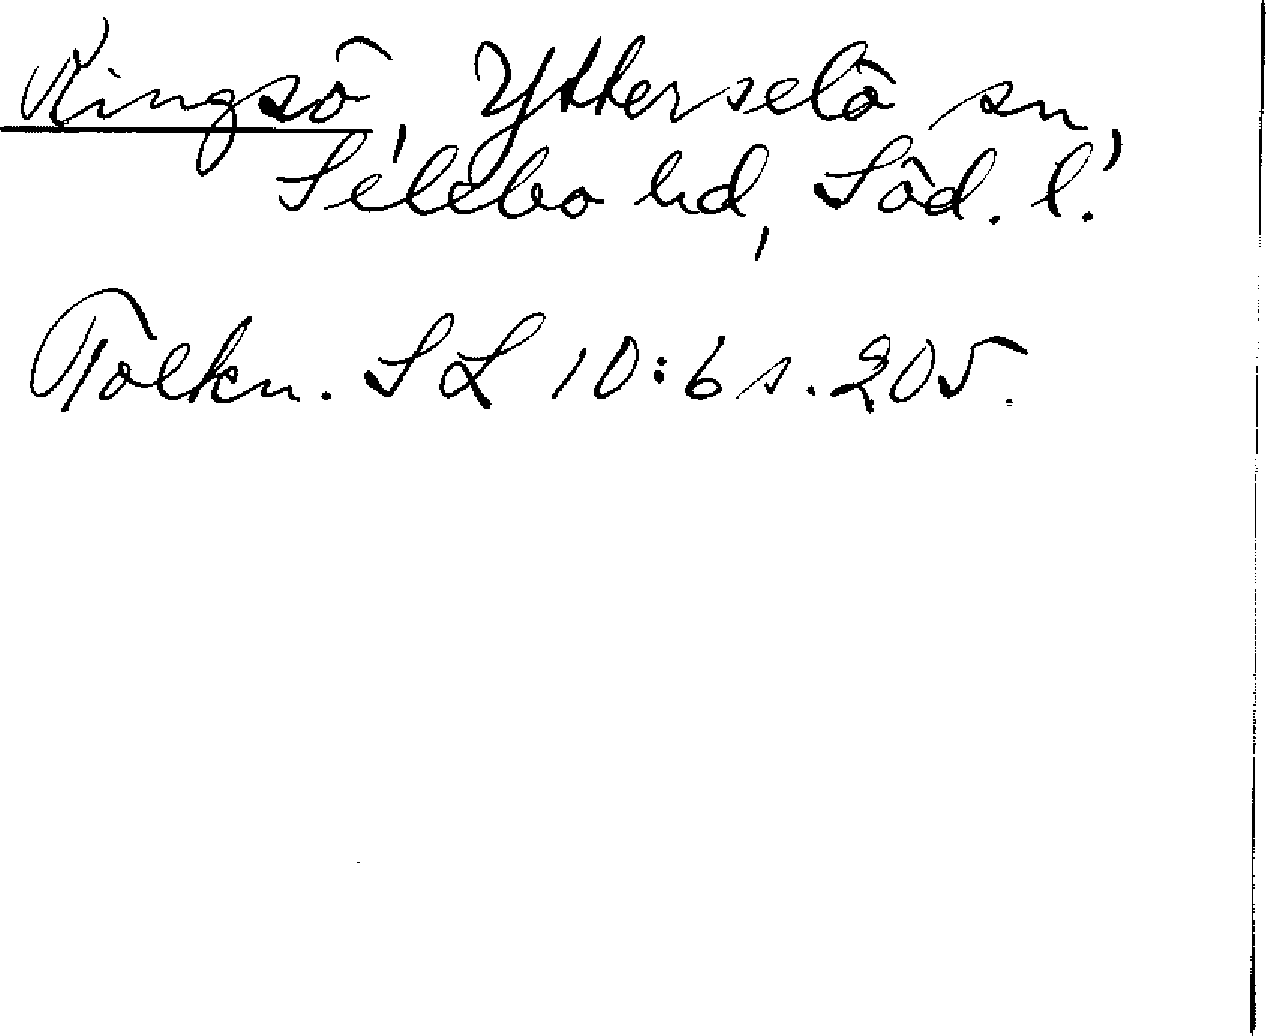 Ringsö, Ytterselö sn,
Selebo hd, Söd. l.
Tolkn. SL 10:6 s. 205.